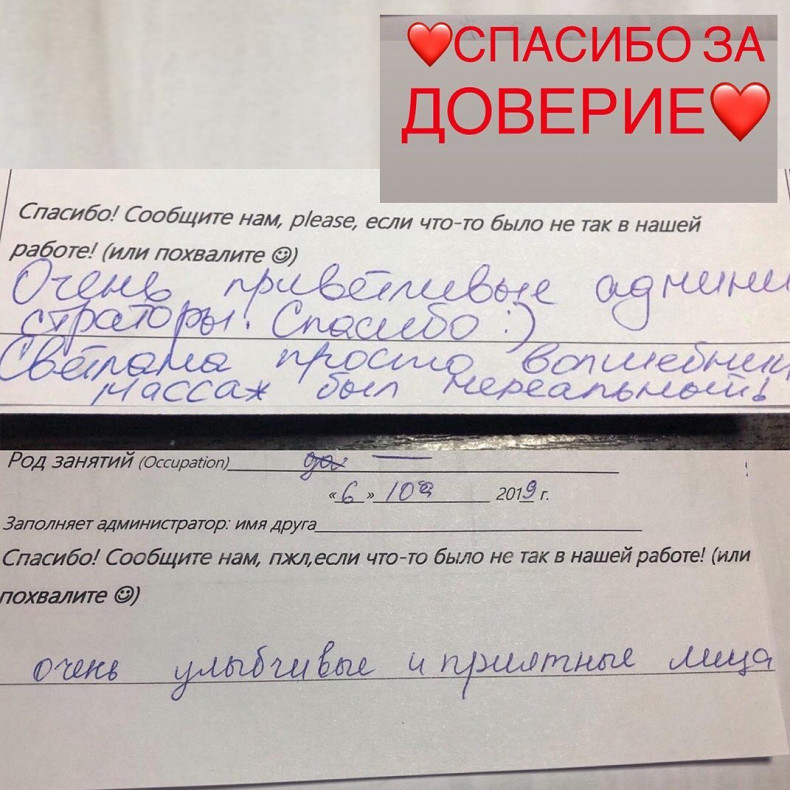 ❤️СПАСИБО ЗА
ДОВЕРИЕ❤️
Спасибо! Сообщите нам, please, если что-то было не так в нашей
работе! (или похвалите ☺)
Очень приветливые админи
страторы! Спасибо :)
Светлана просто волшебниц
массаж был нереальный!
Род занятий (Occupation)
«6» 10 2019 г.
Заполняет администратор: имя друга
Спасибо! Сообщите нам, пжл,если что-то было не так в нашей работе! (или
похвалите ☺)
очень улыбчивые и приятные лица